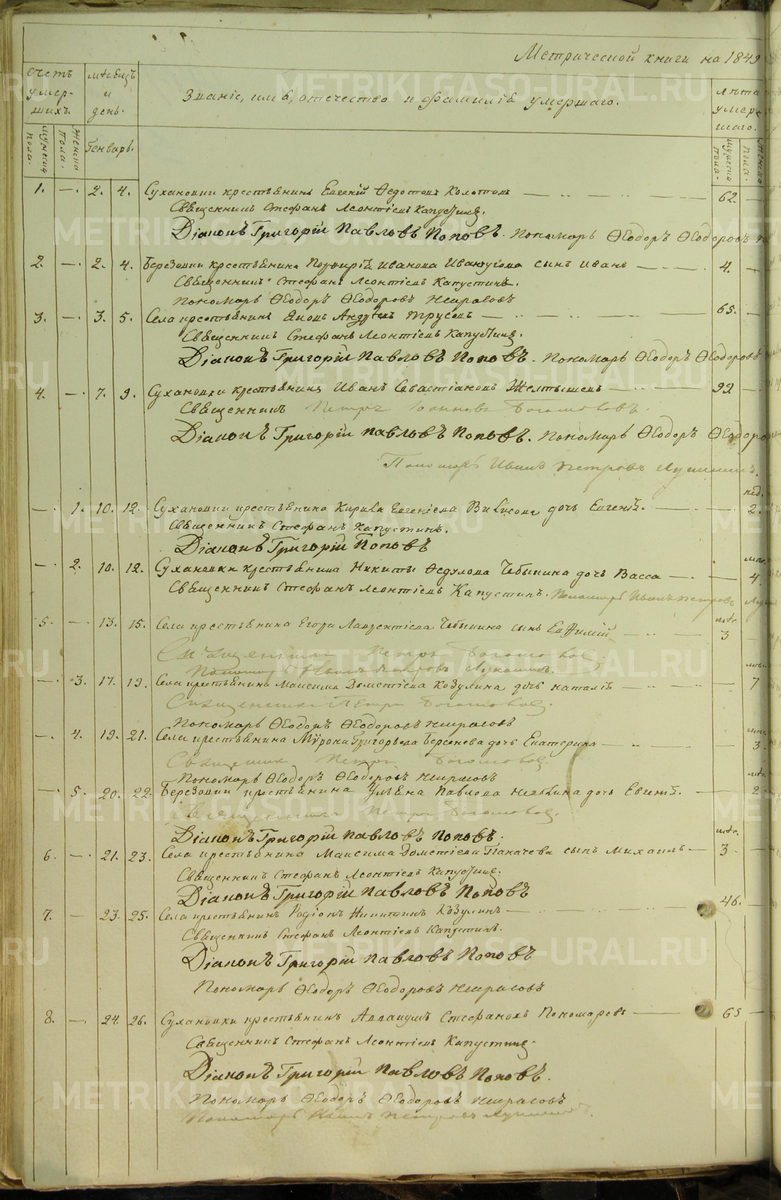 Метрической книги на 1849
Счетъ умершихъ. Месяцъ и день. Званіе, имя, отечество и фамилія умершаго. Лѣта умершаго.
Мужеска пола. Женска пола. Генварь. Мужеска пола. Женска пола.
1. — 2. 4. Сухановки крестьянинъ Евгеній Ѳедотовъ 62. —
Священникъ Стефанъ Леонтіевъ Капустинъ.
Діаконъ Григорій Павловъ Поповъ. Пономарь Ѳеодоръ Ѳеодоровъ
2. — 2. 4. Березовки крестьянина Иванова сынъ Иванъ — 4. —
Священникъ Стефанъ Леонтіевъ Капустинъ.
Пономарь Ѳеодоръ Ѳеодоровъ Некрасовъ
3. — 3. 5. Села крестьянинъ Трусовъ 65. —
Священникъ Стефанъ Леонтіевъ Капустинъ.
Діаконъ Григорій Павловъ Поповъ. Пономарь Ѳеодоръ Ѳеодоровъ
4. — 7. 9. Сухановки крестьянинъ Иванъ Севастіановъ Желтышевъ 92. —
Священникъ Петръ Богомоловъ.
Діаконъ Григорій Павловъ Поповъ. Пономарь Ѳеодоръ
Пономарь Иванъ Петровъ Лукашинъ.
нед.
— 1. 10. 12. Сухановки крестьянина Кирила Евгеніева дочь Евгенія. — 2.
Священникъ Стефанъ Капустинъ.
Діаконъ Григорій Поповъ
— 2. 10. 12. Сухановки крестьянина Никиты Ѳедулова Чебыкина дочь Васса — 4.
Священникъ Стефанъ Леонтіевъ Капустинъ. Пономарь Иванъ Петровъ
5. — 13. 15. Села крестьянина Егора Лаврентіева Чебыкина сынъ Евѳимій — 3
Священникъ Петръ Богомоловъ
Пономарь Иванъ Петровъ Лукашинъ.
— 3. 17. 19. Села крестьянина Максима Дометіева Козулина дочь Наталія — 7
Священникъ Петръ Богомоловъ.
Пономарь Ѳеодоръ Ѳеодоровъ Некрасовъ
— 4. 19. 21. Села крестьянина Григорьева дочь Екатерина — 3.
Священникъ Петръ Богомоловъ.
Пономарь Ѳеодоръ Ѳеодоровъ Некрасовъ
— 5. 20. 22. Березовки крестьянина Павлова дочь Евгенія. — 2
Священникъ Петръ Богомоловъ.
Діаконъ Григорій Павловъ Поповъ.
6. — 21. 23. Села крестьянина Максима Дометіева сынъ Михаилъ — 3
Священникъ Стефанъ Леонтіевъ Капустинъ.
Діаконъ Григорій Павловъ Поповъ
7. — 23. 25. Села крестьянинъ Родіонъ Никитинъ Козулинъ — 46.
Священникъ Стефанъ Леонтіевъ Капустинъ.
Діаконъ Григорій Павловъ Поповъ
Пономарь Ѳеодоръ Ѳеодоровъ Некрасовъ
8. — 24. 26. Сухановки крестьянинъ Стефановъ Пономаревъ — 65 —
Священникъ Стефанъ Леонтіевъ Капустинъ.
Діаконъ Григорій Павловъ Поповъ.
Пономарь Ѳеодоръ Ѳеодоровъ Некрасовъ
Пономарь Иванъ Петровъ Лукашинъ.
METRIKI.RASO-URAL.RU